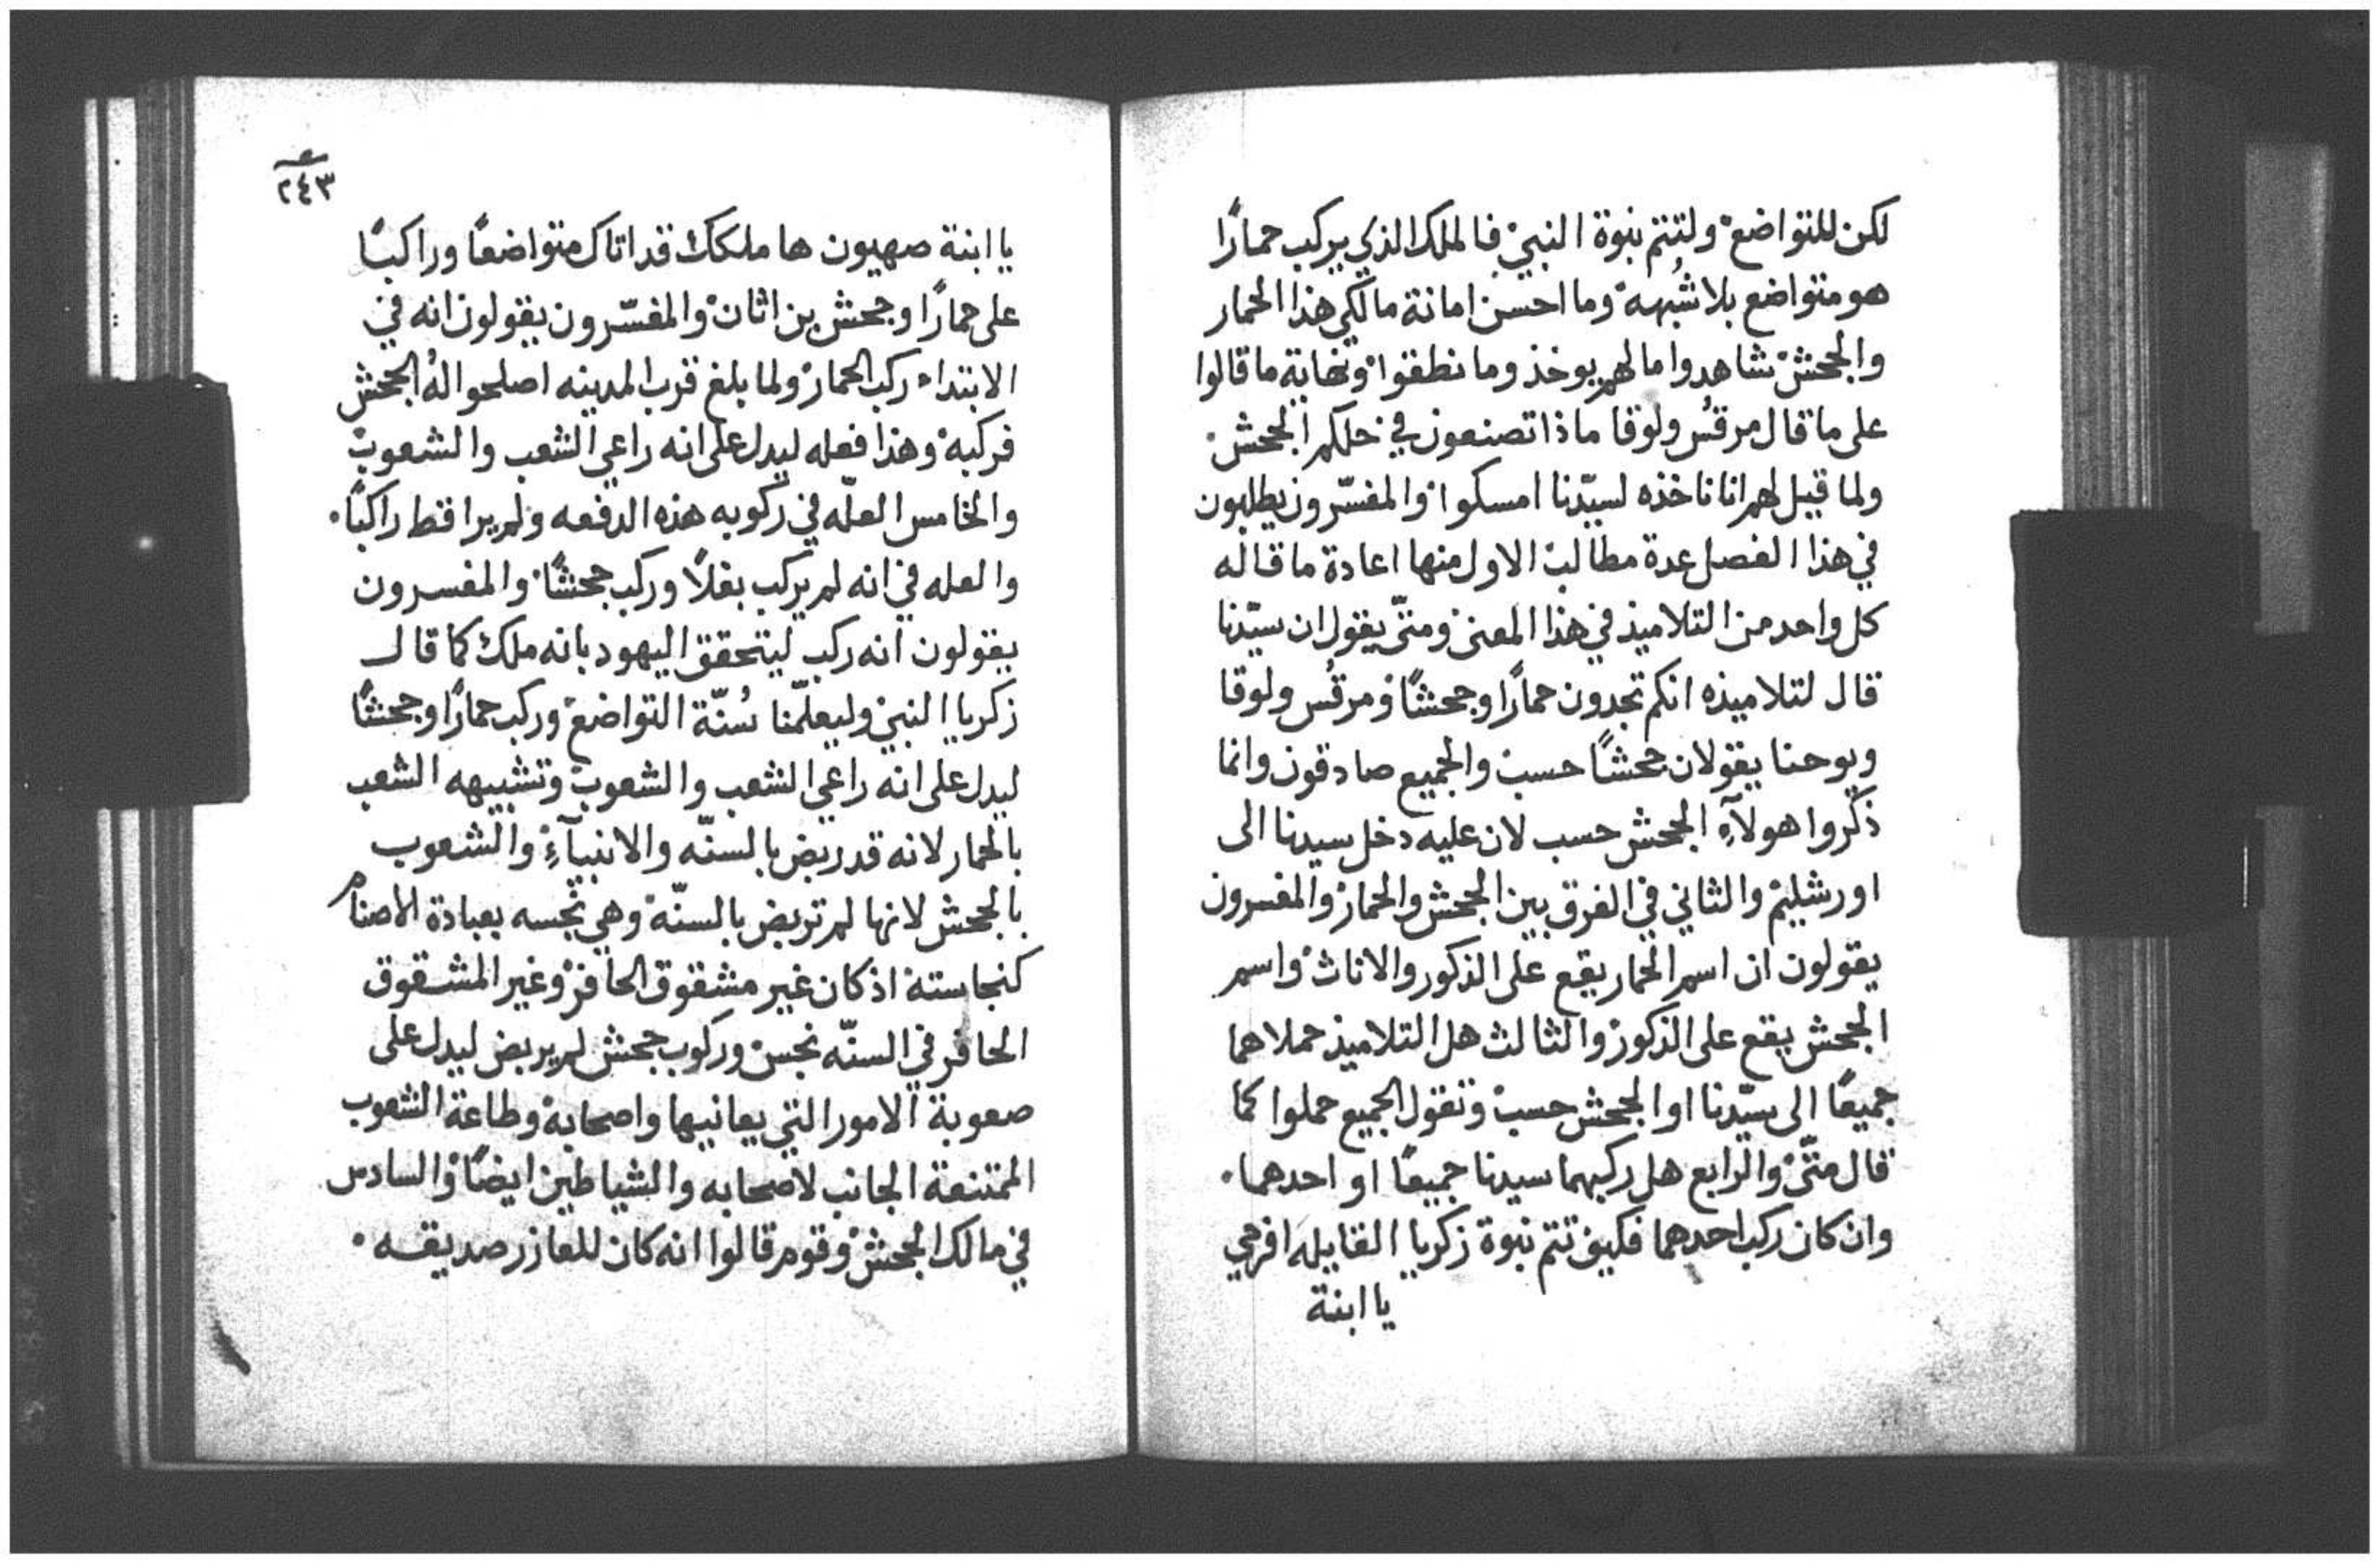 لكن للتواضع ولتتم نبوة النبي فالملك الذي يركب حمارًا
هو متواضع بلا شُبهه وما احسن امانة مالكي هذا الحمار
والجحش شاهدوا مالهم يوخذ وما نطقوا ونهاية ما قالوا
على ما قال مرقُس ولوقا ماذا تصنعون في حلكم الجحش
ولما قيل لهم اننا ناخذه لسيّدنا امسكوا والمفسّرون يطلبون
في هذا الفصل عدة مطالب الاول منها اعادة ما قاله
كل واحد من التلاميذ في هذا المعنى ومتّى يقول ان سيّدنا
قال لتلاميذه انكم تجدون حمارًا وجحشًا ومرقُس ولوقا
ويوحنا يقولان جحشًا حسب والجميع صادقون وانما
ذكروا هولآءِ الجحش حسب لان عليه دخل سيدنا الى
اورشليم والثاني في الفرق بين الجحش والحمار والمفسرون
يقولون ان اسم الحمار يقع على الذكور والاناث واسم
الجحش يقع على الذكور والثالث هل التلاميذ حملاهما
جميعًا الى سيّدنا او الجحش حسب وتقول الجميع حملوا كما
قال متّى والرابع هل ركبهما سيدنا جميعًا او احدهما.
وان كان ركب احدهما فكيف تتم نبوة زكريا القايله افرحي
يا ابنة
٢٤٣
يا ابنة صهيون ها ملكك قد اتاك متواضعًا وراكبًا
على حمارًا وجحش بن اتان والمفسّرون يقولون انه في
الابتداء ركب الحمار ولما بلغ قرب المدينه اصلحوا لهُ الجحش
فركبه وهذا فعله ليدل على انه راعي الشعب والشعوب
والخامس العلّه في ركوبه هذه الدفعه ولم يرا قط راكبًا.
والعله في انه لم يركب بغلًا وركب جحشًا والمفسرون
يقولون انه ركب ليتحقق اليهود بانه ملك كما قال
زكريا النبي وليعلّمنا سُنّة التواضع وركب حمارًا وجحشًا
ليدل على انه راعي الشعب والشعوب وتشبيهه الشعب
بالحمار لانه قد ريض بالسنّه والانبيآءِ والشعوب
بالجحش لانها لم تريض بالسنّه وهي نجسه بعبادة الاصنام
كنجاسته اذ كان غير مشقوق الحافر وغير المشقوق
الحافر في السنّه نجس وركوب جحش لم يريض ليدل على
صعوبة الامور التي يعانيها واصحابه وطاعة الشعوب
الممتنعة الجانب لاصحابه والشياطين ايضًا والسادس
في مالك الجحش وقوم قالوا انه كان للعازر صديقه.